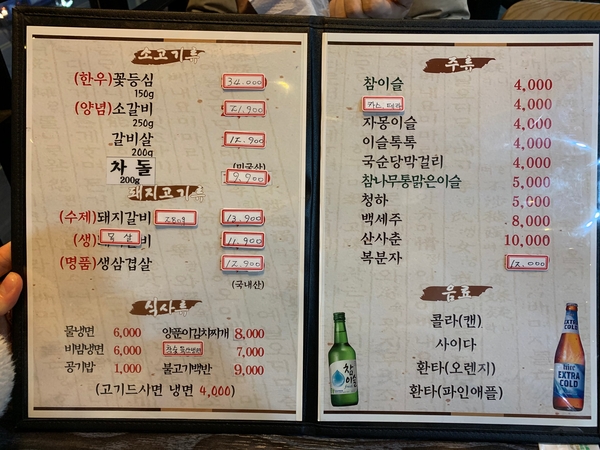 소고기류
(한우)꽃등심 34,000
150g
(양념)소갈비 21,900
250g
갈비살 12,900
200g
(미국산)
차돌 9,900
200g
돼지고기류
(수제)돼지갈비 280g 13,900
(생)목살비 11,900
(명품)생삼겹살 12,900
(국내산)
식사류
물냉면 6,000 양푼이김치찌개 8,000
비빔냉면 6,000 7,000
공기밥 1,000 불고기백반 9,000
(고기드시면 냉면 4,000)
주류
참이슬 4,000
카스, 테라 4,000
자몽이슬 4,000
이슬톡톡 4,000
국순당막걸리 4,000
참나무통맑은이슬 5,000
청하 5,000
백세주 8,000
산사춘 10,000
복분자 12,000
음료
콜라(캔)
사이다
환타(오렌지)
환타(파인애플)
참이슬
EXTRA COLD
EXTRA
COLD